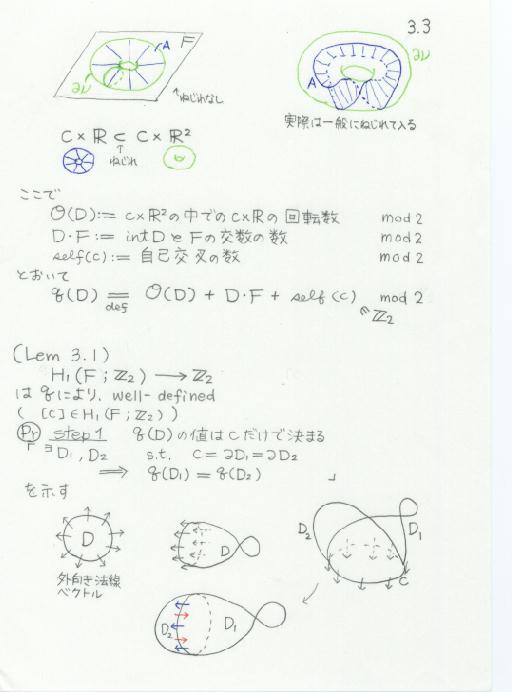 3.3
F
A
∂ν
ねじれなし
∂ν
A
実際は一般にねじれて入る
C × ℝ ⊂ C × ℝ²
ねじれ
ここで
O(D) := C×ℝ²の中でのC×ℝの回転数 mod 2
D・F := int D と Fの交叉の数 mod 2
self(C) := 自己交叉の数 mod 2
とおいて
q(D) = O(D) + D・F + self(C) mod 2
def
∈ ℤ₂
(Lem 3.1)
H₁(F ; ℤ₂) → ℤ₂
は qにより, well-defined
( [C] ∈ H₁(F ; ℤ₂) )
Pr step 1 q(D)の値はCだけで決まる
「 ∃D₁, D₂ s.t. C = ∂D₁ = ∂D₂
⟹ q(D₁) = q(D₂) 」
を示す
D
外向き法線
ベクトル
D
D₂
D₁
C
D₂
D₁